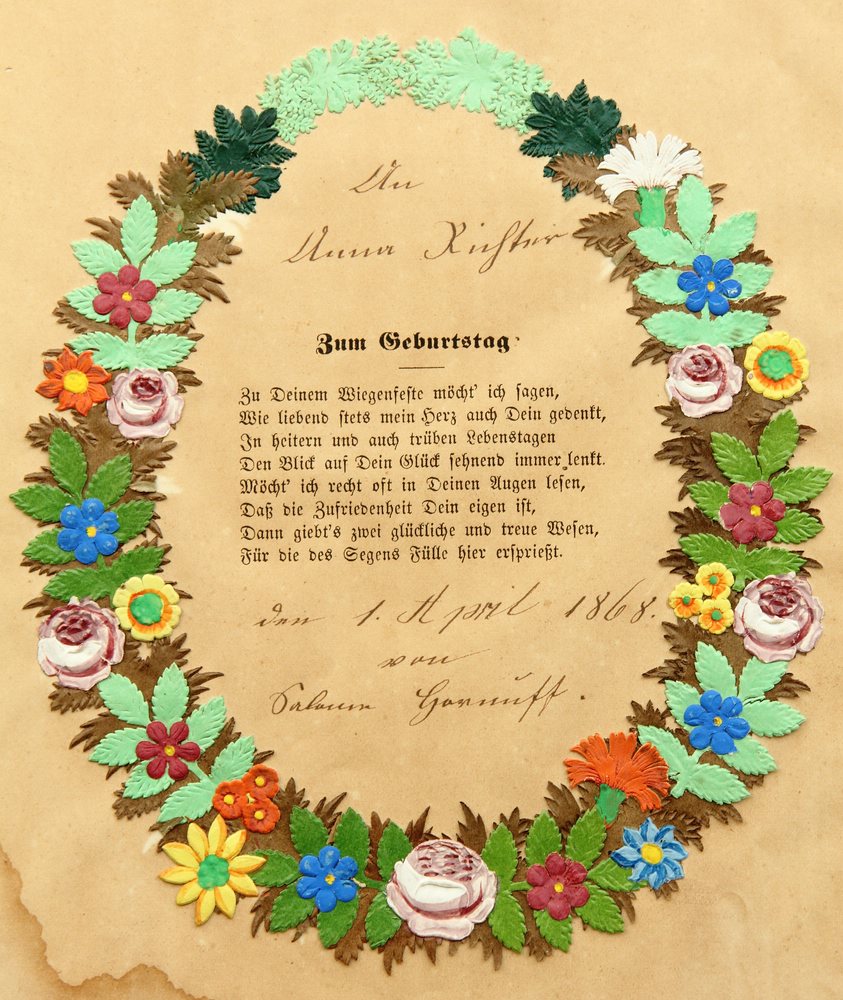 An
Anna Richter
Zum Geburtstag
Zu Deinem Wiegenfeste möcht' ich sagen,
Wie liebend stets mein Herz auch Dein gedenkt,
In heitern und auch trüben Lebenstagen
Den Blick auf Dein Glück sehnend immer lenkt.
Möcht' ich recht oft in Deinen Augen lesen,
Daß die Zufriedenheit Dein eigen ist,
Dann giebt's zwei glückliche und treue Wesen,
Für die des Segens Fülle hier ersprießt.
den 1. April 1868.
von
Salome Hornuff.